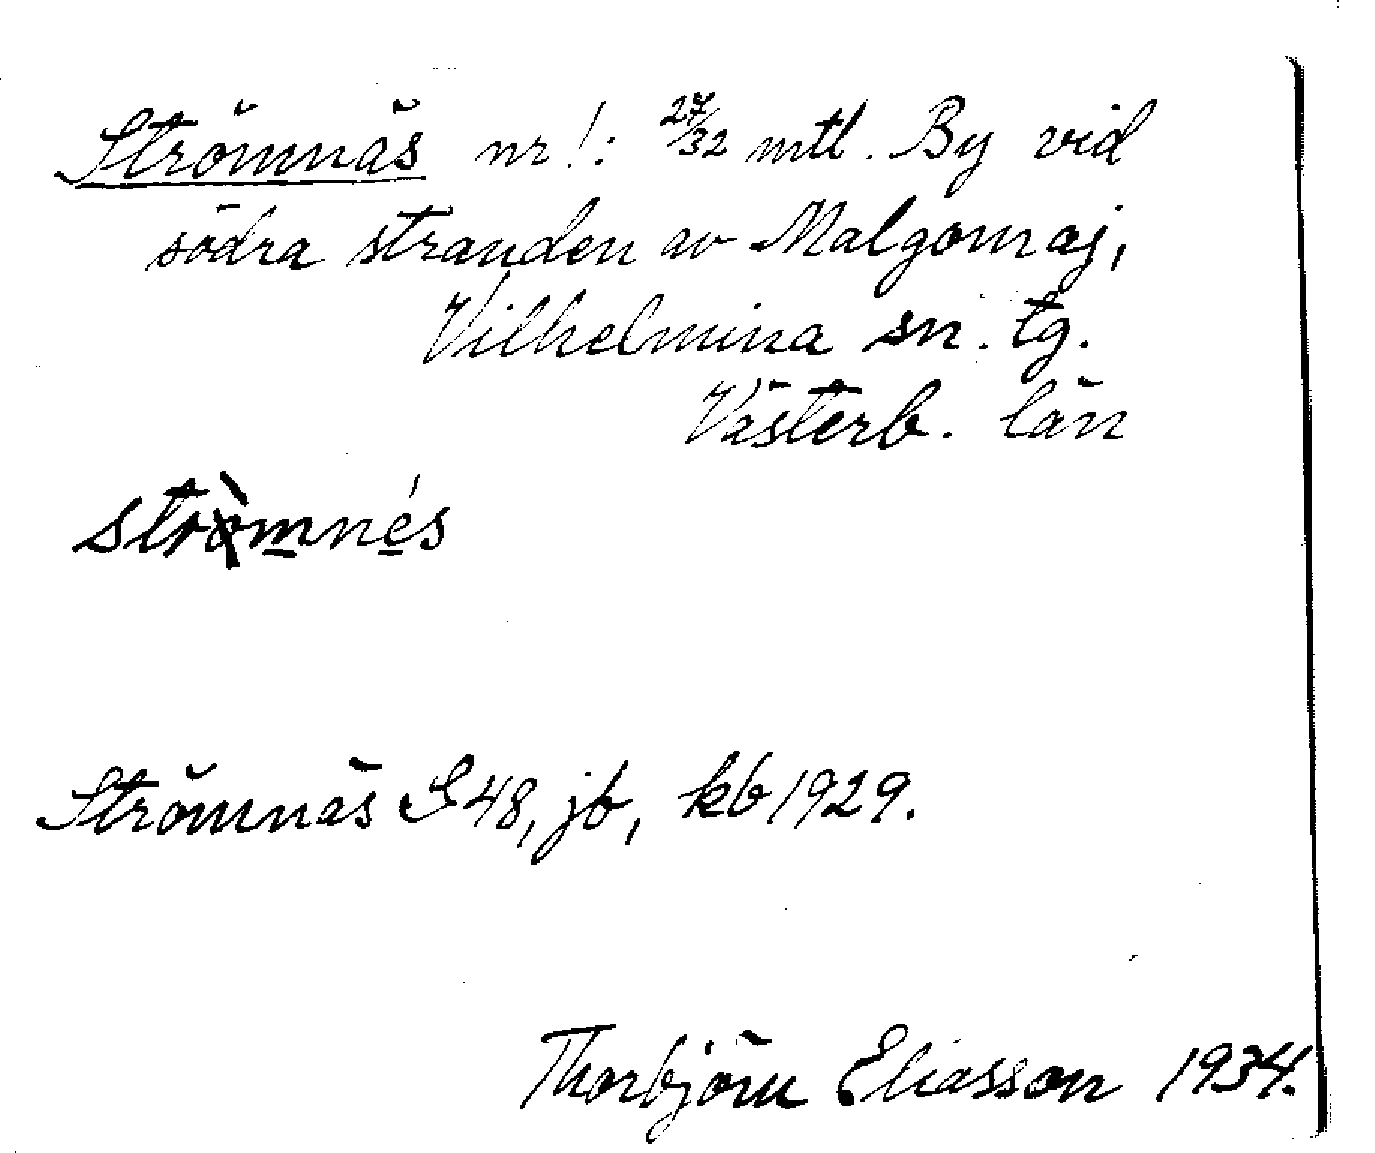 Strömnäs nr 1: 27/32 mtl. By vid
södra stranden av Malgomaj,
Vilhelmina sn. tg.
Västerb. län
strò̰m̲né̲s
Strömnäs G48, jb, kb 1929.
Thorbjörn Eliasson 1934.